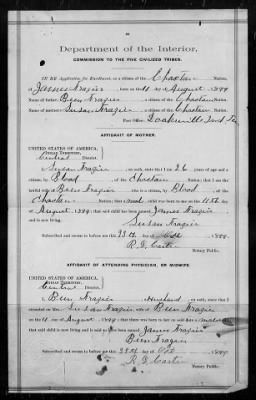 Department of the Interior,
COMMISSION TO THE FIVE CIVILIZED TRIBES.
IN RE Application for Enrollment, as a citizen of the Choctaw Nation,
of James Frazier, born on the 11 day of August 1899
Name of father: Ben Frazier a citizen of the Choctaw Nation.
Name of mother: Susan Frazier a citizen of the Choctaw Nation.
Post Office: Ind Ter
AFFIDAVIT OF MOTHER.
UNITED STATES OF AMERICA,
INDIAN TERRITORY,
Central District.
I, Susan Frazier, on oath state that I am 26 years of age and a
citizen, by Blood, of the Choctaw Nation; that I am the
lawful wife of Ben Frazier, who is a citizen, by Blood of the
Choctaw Nation; that a male child was born to me on 11th day
of August, 1899; that said child has been named James Frazier
and is now living.
Susan Frazier
Subscribed and sworn to before me this day of Oct 1899.
Notary Public.
AFFIDAVIT OF ATTENDING PHYSICIAN, OR MIDWIFE.
UNITED STATES OF AMERICA,
INDIAN TERRITORY,
Central District.
I, Ben Frazier, Husband, on oath, state that I attended
Mrs. Susan Frazier, wife of Ben Frazier
on the 11 day of August, 1899; that there was born to her on said date a male
child; that said child is now living and is said to have been named James Frazier
Ben Frazier
Subscribed and sworn to before me this day of Oct 1899.
Notary Public.